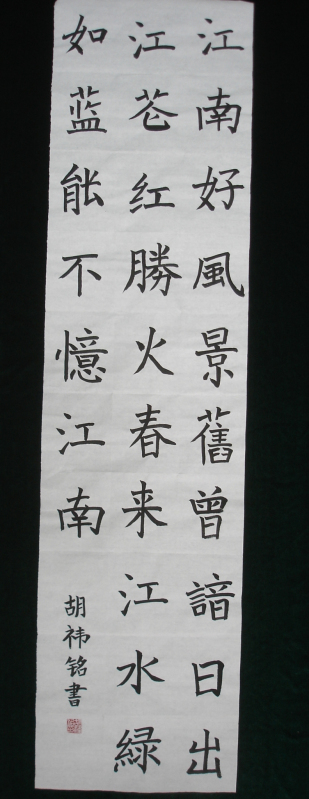 江南好風景舊曾諳日出
江花红勝火春来江水緑
如蓝能不憶江南
胡祎铭書